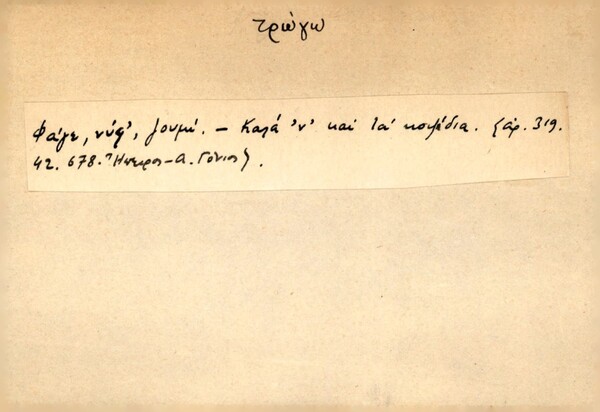 τρώγω
Φάγε, νύφ', ζουμί. – Καλά 'ν' και τα κοψίδια. {αρ. 319.
42. 678. Ήπειρος – Α. Γόνιος}.